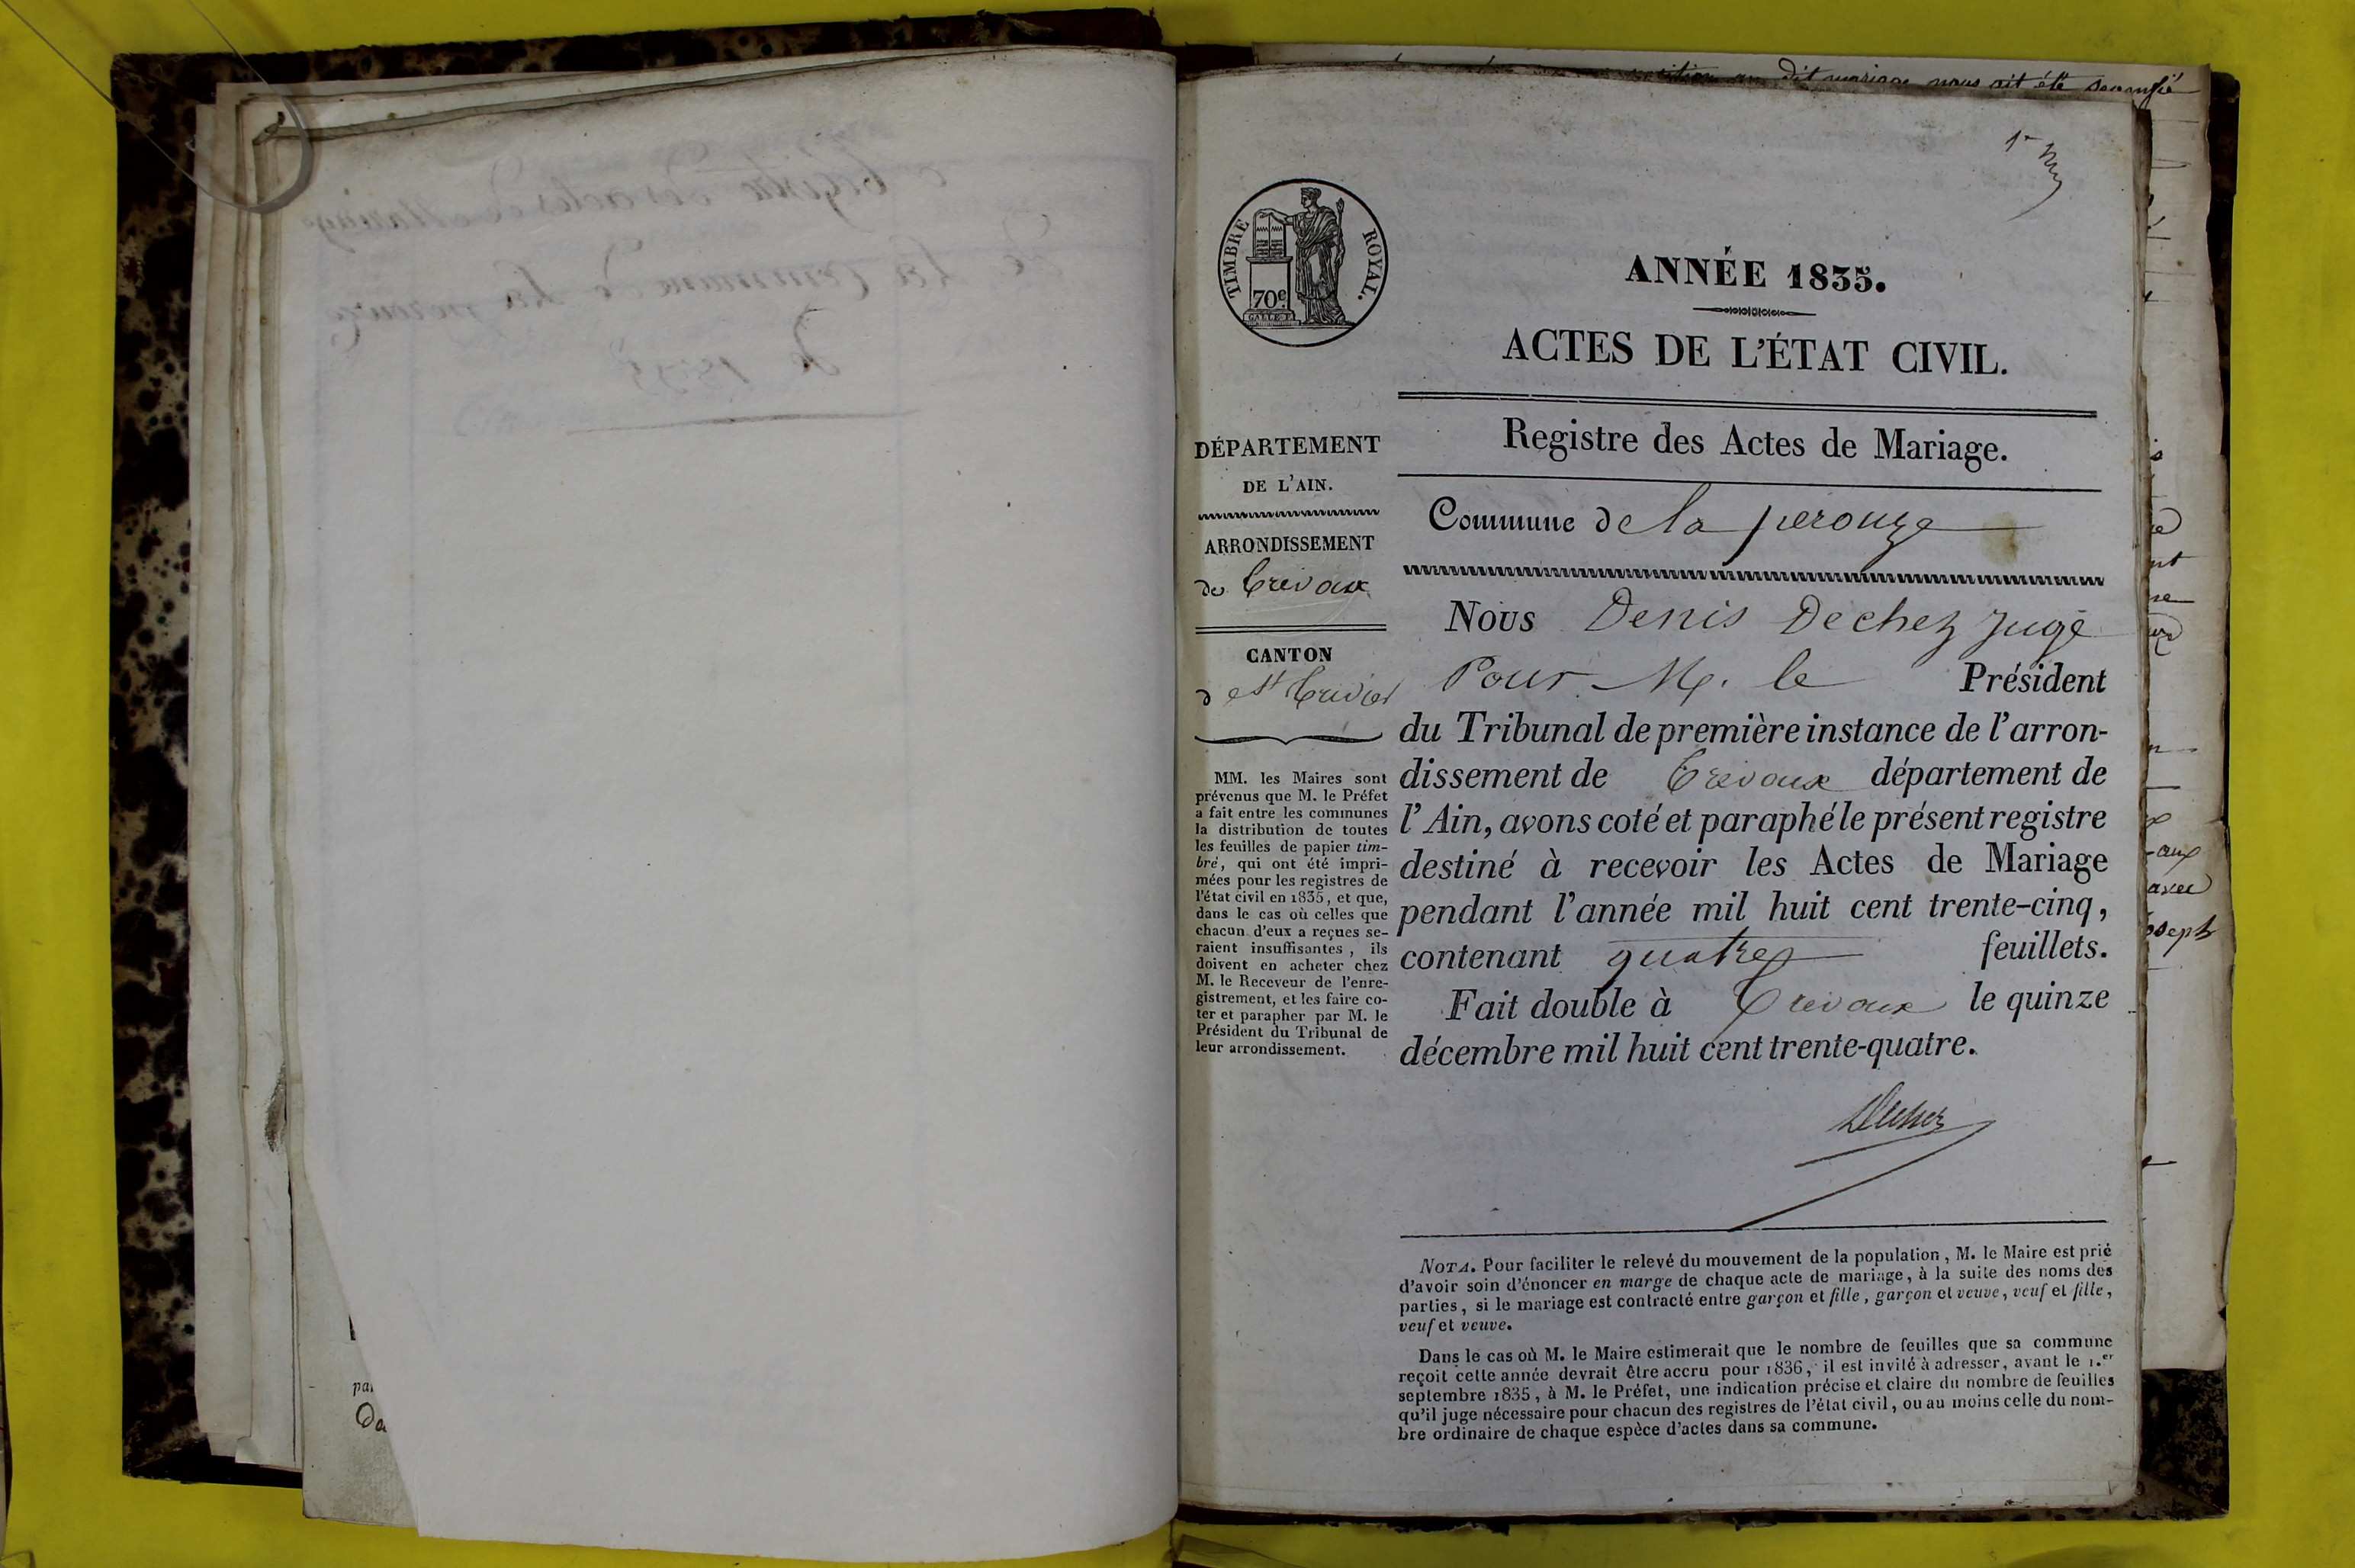 dit mariage nous ait été
1er
TIMBRE ROYAL.
70c.
ANNÉE 1835.
ACTES DE L'ÉTAT CIVIL.
Registre des Actes de Mariage.
Commune de la perouze
DÉPARTEMENT
DE L'AIN.
ARRONDISSEMENT
de Trevoux
CANTON
de St Trivier
MM. les Maires sont
prévenus que M. le Préfet
a fait entre les communes
la distribution de toutes
les feuilles de papier tim-
bré, qui ont été impri-
mées pour les registres de
l'état civil en 1835, et que,
dans le cas où celles que
chacun d'eux a reçues se-
raient insuffisantes, ils
doivent en acheter chez
M. le Receveur de l'enre-
gistrement, et les faire co-
ter et parapher par M. le
Président du Tribunal de
leur arrondissement.
Nous Denis Dechez Juge
Pour M. le Président
du Tribunal de première instance de l'arron-
dissement de Trevoux département de
l'Ain, avons coté et paraphé le présent registre
destiné à recevoir les Actes de Mariage
pendant l'année mil huit cent trente-cinq,
contenant quatre feuillets.
Fait double à Trevoux le quinze
décembre mil huit cent trente-quatre.
Dechez
NOTA. Pour faciliter le relevé du mouvement de la population, M. le Maire est prié
d'avoir soin d'énoncer en marge de chaque acte de mariage, à la suite des noms des
parties, si le mariage est contracté entre garçon et fille, garçon et veuve, veuf et fille,
veuf et veuve.
Dans le cas où M. le Maire estimerait que le nombre de feuilles que sa commune
reçoit cette année devrait être accru pour 1836, il est invité à adresser, avant le 1.er
septembre 1835, à M. le Préfet, une indication précise et claire du nombre de feuilles
qu'il juge nécessaire pour chacun des registres de l'état civil, ou au moins celle du nom-
bre ordinaire de chaque espèce d'actes dans sa commune.